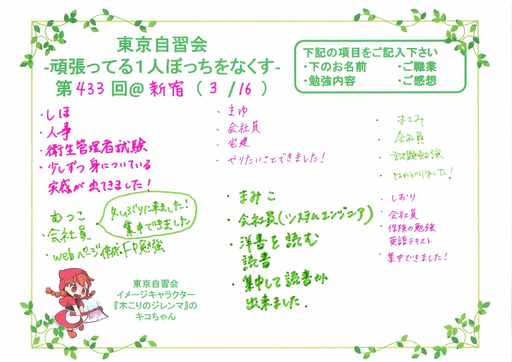 東京自習会
-頑張ってる1人ぼっちをなくす-
第433回@新宿(3/16)
下記の項目をご記入下さい
・下のお名前 ・ご職業
・勉強内容 ・ご感想
・しほ
・人事
・衛生管理者試験
・少しずつ身についている
実感が出てきました!
・まゆ
・会社員
・宅建
・やりたいことできました!
・会社員
・試験勉強
あっこ
・会社員
・webページ作成・FP勉強
久しぶりに来ました!
集中できました
・まみこ
・会社員(システムエンジニア)
・洋書を読む
読書
・集中して読書が
出来ました.
・しおり
・会社員
・保険の勉強
英語テキスト
・集中できました!
東京自習会
イメージキャラクター
『木こりのジレンマ』の
キコちゃん